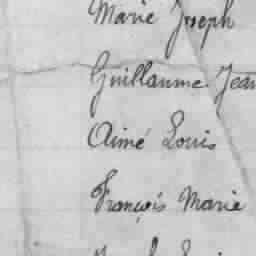 Marie Joseph
Guillaume Jean
Aimé Louis
François Marie